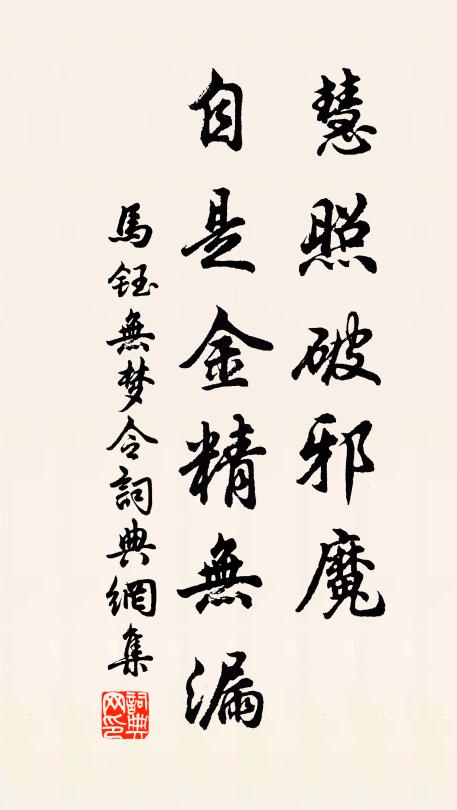 慧照破邪魔
自是金精無漏
馬鈺無梦令詞典網集
詞典網印